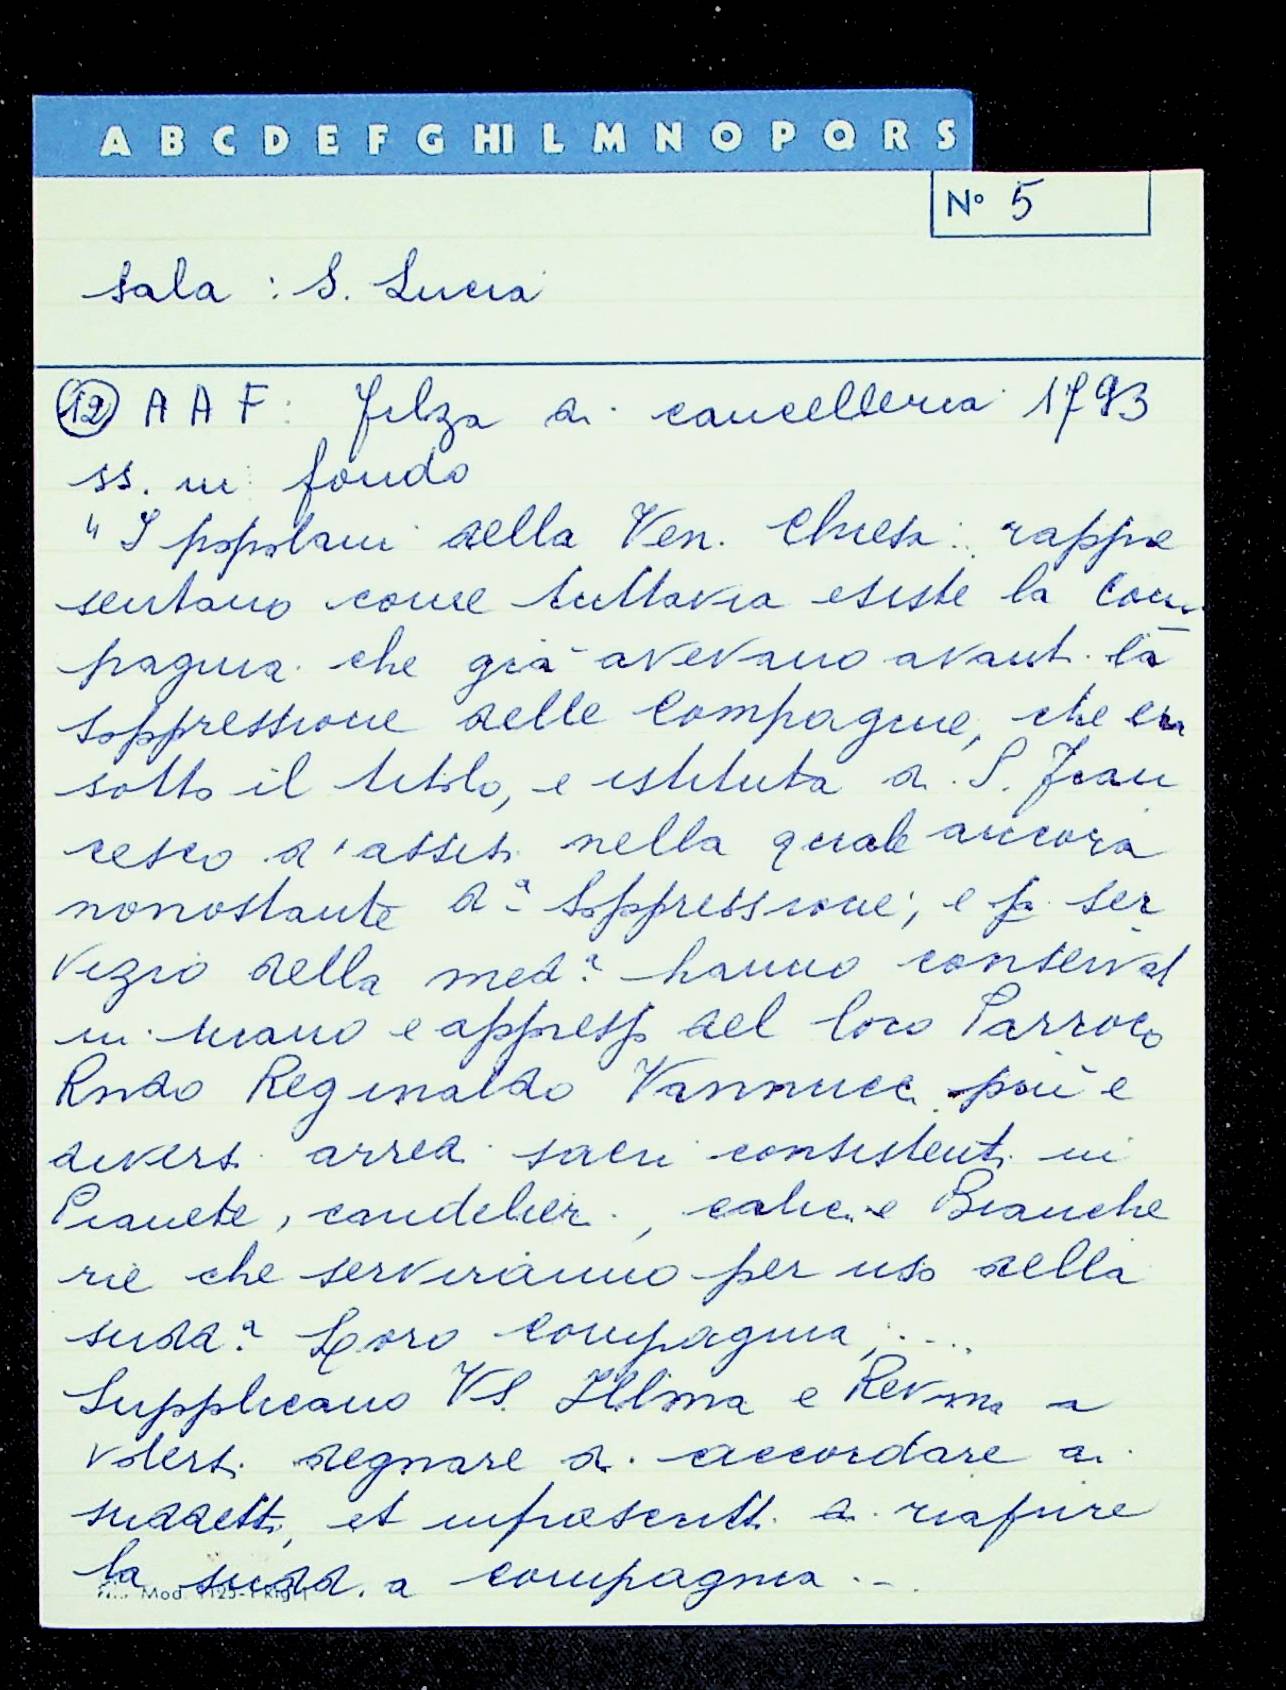 A B C D E F G HI L M N O P Q R S
N° 5
Sala : S. Lucia
12 A A F : Filza di cancelleria 1793
ss. in fondo
"I popolani della Ven. Chiesa : rappre
sentano come tuttavia esiste la Com
pagnia che già avevano avanti la
soppressione delle Compagnie, che era
sotto il titolo, e istituta di S. Fran
cesco d'assisi nella quale ancora
nonostante d.ª Soppressione; e p. ser
vizio della med.ª hanno conservat
in mano e appresso del loro Parroco
Rndo Reginaldo Vannucci più e
diversi arredi sacri consistenti in
Pianete, candelieri, calici e Bianche
rie che serviranno per uso della
sudd.ª Loro compagnia, ....
Supplicano VS. Illma e Revma a
volersi degnare di accordare ai
suddetti, et infrascritti di riaprire
la sudd.a compagnia...
Mod. 1125-1 Rig